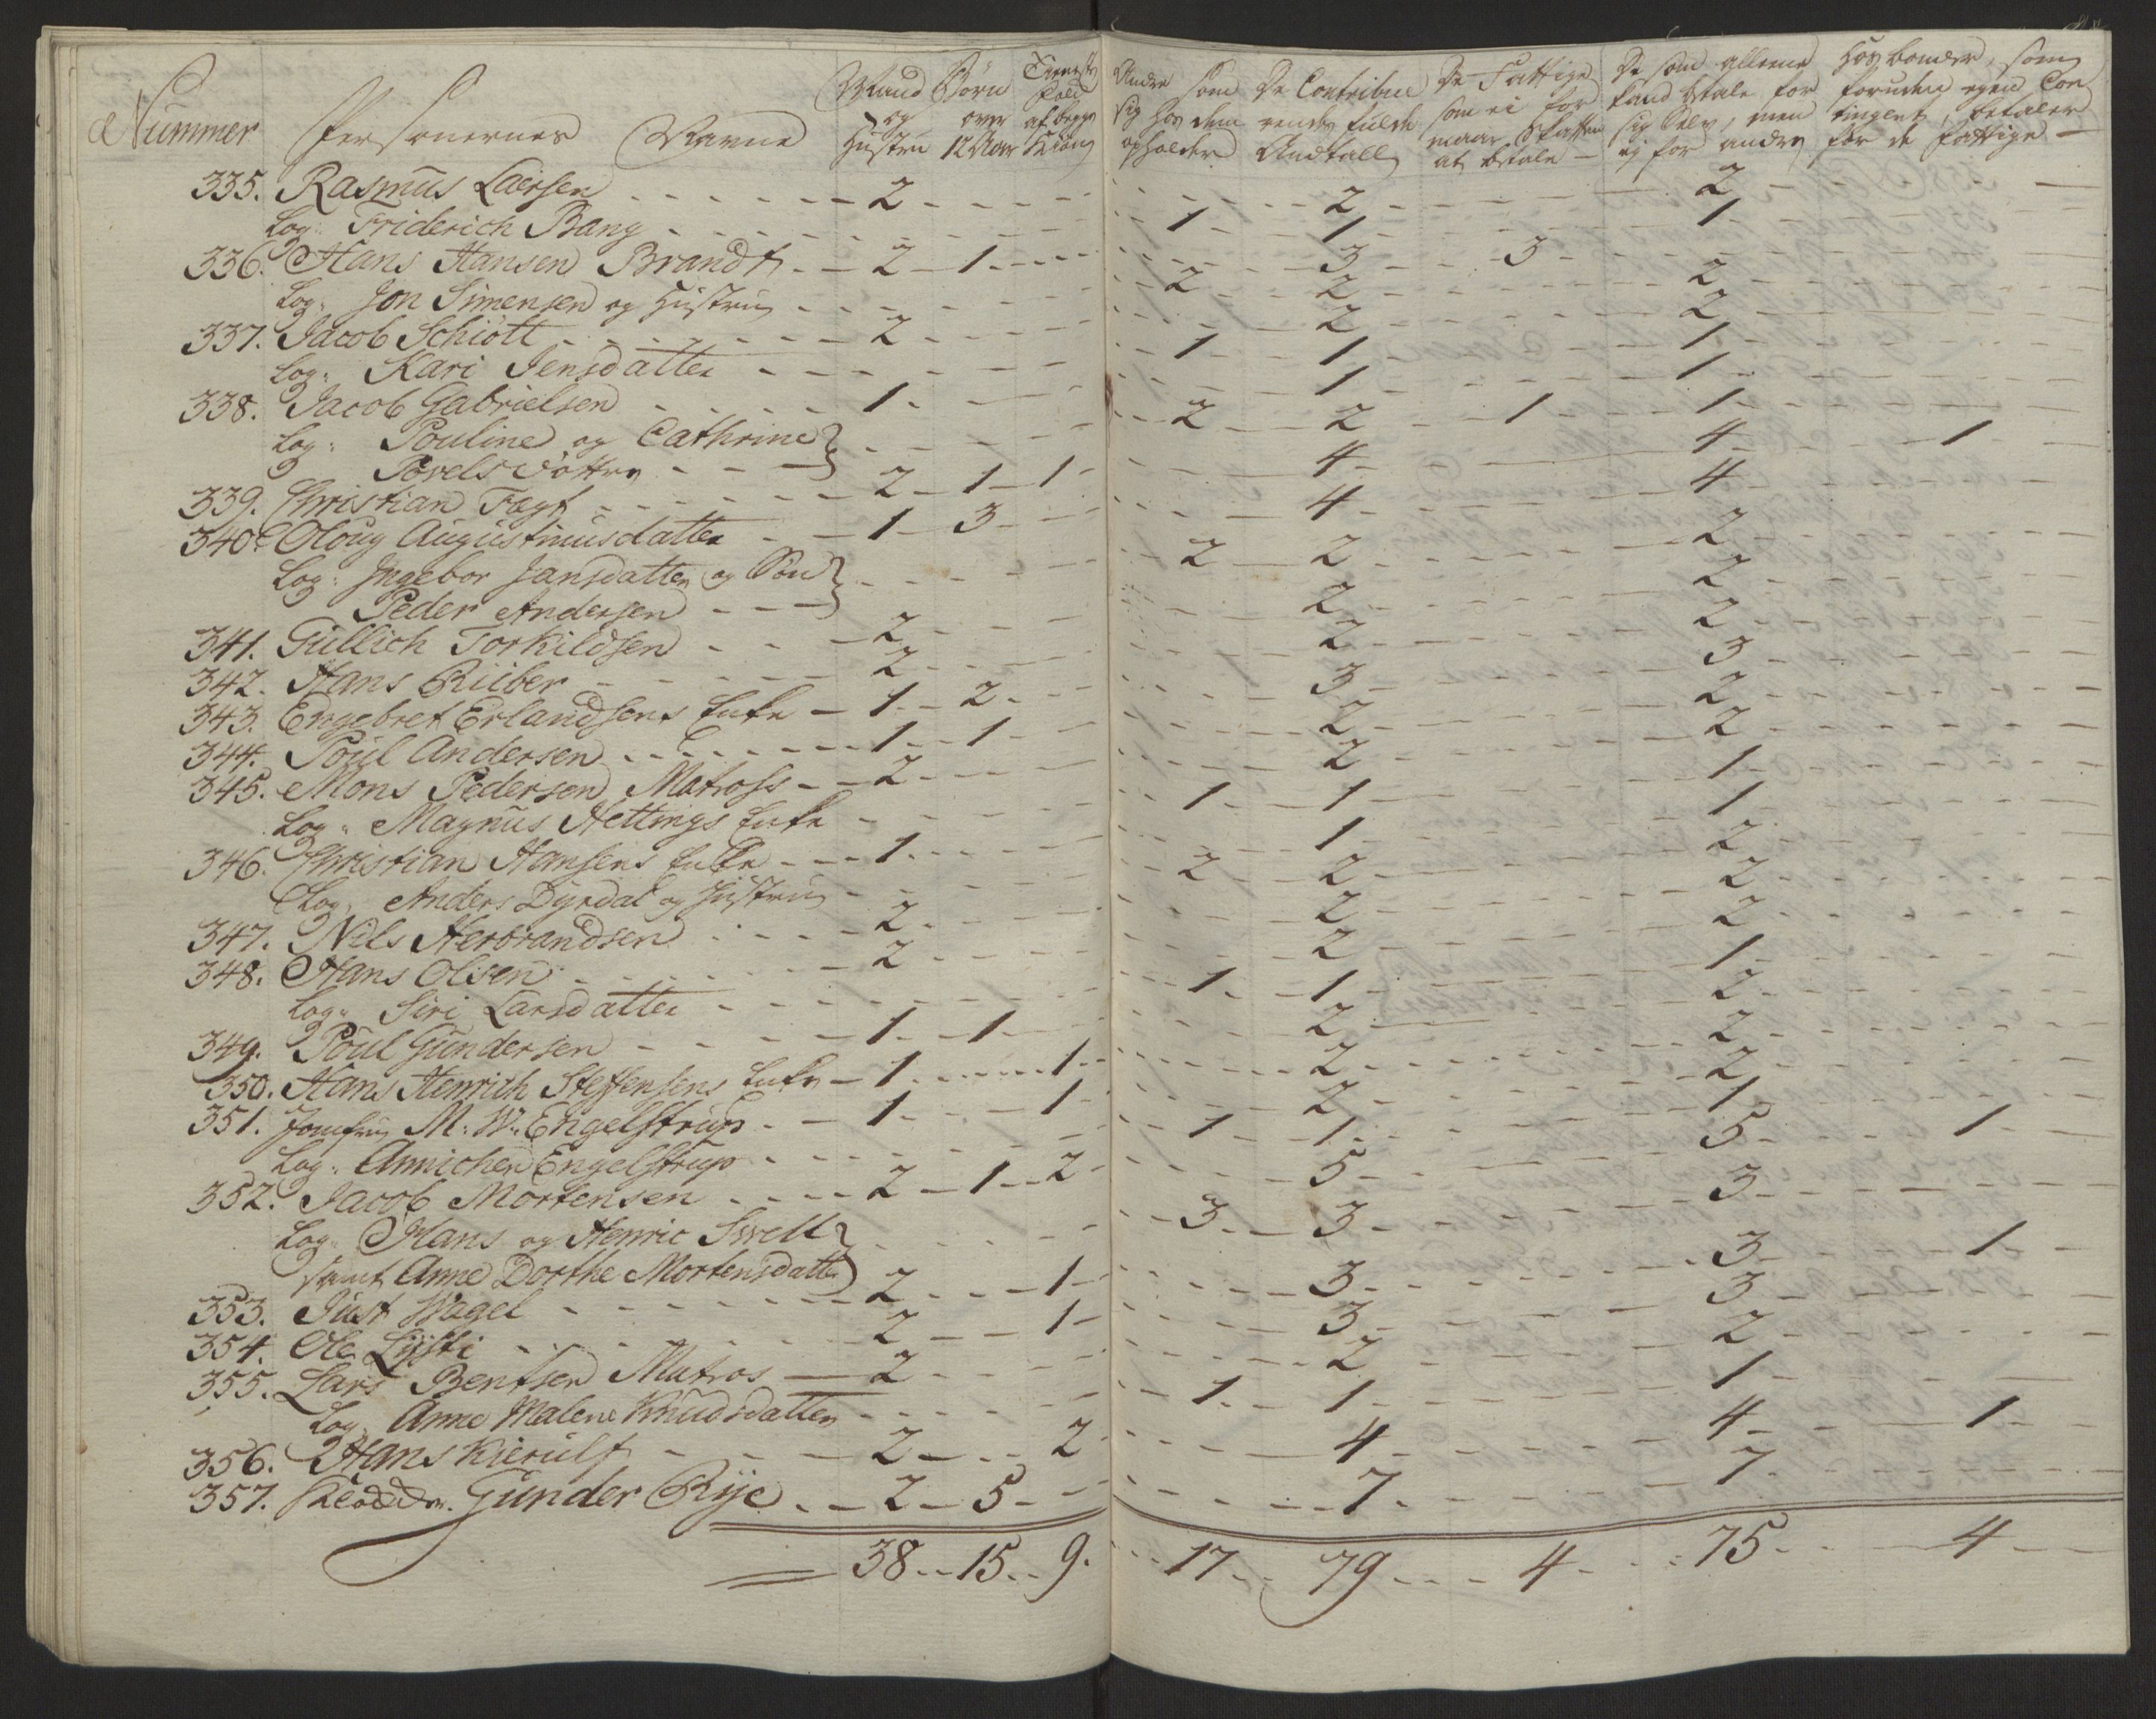 Nummer Personernes Navne Mand og Hustru Børn over 12 Aar Tieneste Folk af begge Kiøn Andre som sig hos dem opholder De Contribuerende fulde Andtall De Fattige som ei formaar Skatten at betale De som alleene kand betale for sig Selv, men ej for andre Hosbonder, som foruden egen Contingent, betaler for de fattige
335. Rasmus Laersen 2 2 2
Log: Friderich Bang 1 1 1
336. Hans Hansen Brandt 2 1 3 3
Log: Jon Simensen og Hustrue 2 2 2
337. Jacob Schiøtt 2 2 2
Log: Kari Jensdatter 1 1 1
338. Jacob Gabrielsen 1 1 1
Log: Pouline og Cathrine
Povels Døttre 2 2 1 1
339. Christian Fagt 2 1 1 4 4 1
340. Oloug Augustinusdatter 1 3 4 4
Log: Ingebor Jansdatter og Søn
Peder Andersen 2 2 2
341. Gullich Torkildsen 2 2 2
342. Hans Riiber 2 2 2
343. Engebret Erlandsens Enke 1 2 3 3
344. Poul Andersen 1 1 2 2
345. Mons Pedersen Matross 2 2 2
Log: Magnus Hettings Enke 1 1 1
346. Christian Hansens Enke 1 1 1
Log: Anders Dyrdal og Hustrue 2 2 2
347. Nils Herbrandsen 2 2 2
348. Hans Olsen 2 2 2
Log: Siri Larsdatter 1 1 1
349. Poul Gundersen 1 1 2 2
350. Hans Henrich Steffensens Enke 1 1 2 2
351. Jomfru M: W: Engelstrup 1 1 2 2
Log: Annichen Engelstrup 1 1 1
352. Jacob Mortensen 2 1 2 5 5 1
Log: Hans og Henric Swelt
samt Anne Dorthe Mortensdatter 3 3 3
353. Just Wagel 2 1 3 3 1
354. Ole Lysti 2 1 3 3
355. Lars Bentsen Matros 2 2 2
Log: Anne Malene Knudsdatter 1 1 1
356. Hans Kierulf 2 2 4 4 1
357. Gunder Rye 2 5 7 7
38 15 9 17 79 4 75 4